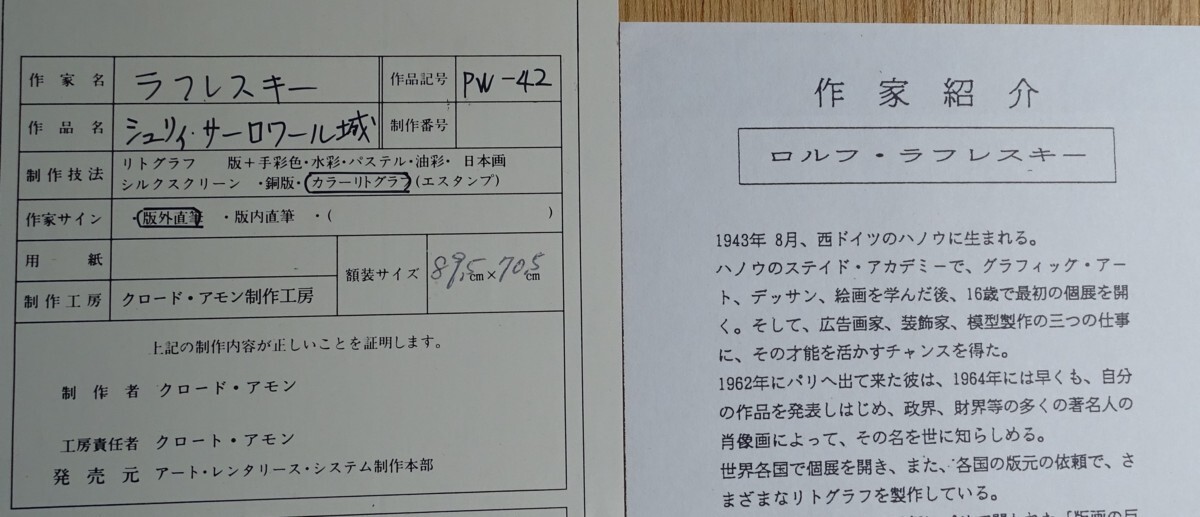 作家名 ラフレスキー 作品記号 PW-42
作品名 シュリィ・サーロワール城 制作番号
制作技法 リトグラフ 版+手彩色・水彩・パステル・油彩・ 日本画
シルクスクリーン ・銅版・カラーリトグラフ(エスタンプ)
作家サイン ・版外直筆 ・版内直筆 ・( )
用紙 額装サイズ 89.5cm×70.5cm
制作工房 クロード・アモン制作工房
上記の制作内容が正しいことを証明します。
制作者 クロード・アモン
工房責任者 クロート・アモン
発売元 アート・レンタリース・システム制作本部
作家紹介
ロルフ・ラフレスキー
1943年 8月、西ドイツのハノウに生まれる。
ハノウのステイド・アカデミーで、グラフィック・アー
ト、デッサン、絵画を学んだ後、16歳で最初の個展を開
く。そして、広告画家、装飾家、模型製作の三つの仕事
に、その才能を活かすチャンスを得た。
1962年にパリへ出て来た彼は、1964年には早くも、自分
の作品を発表しはじめ、政界、財界等の多くの著名人の
肖像画によって、その名を世に知らしめる。
世界各国で個展を開き、また、各国の版元の依頼で、さ
まざまなリトグラフを製作している。